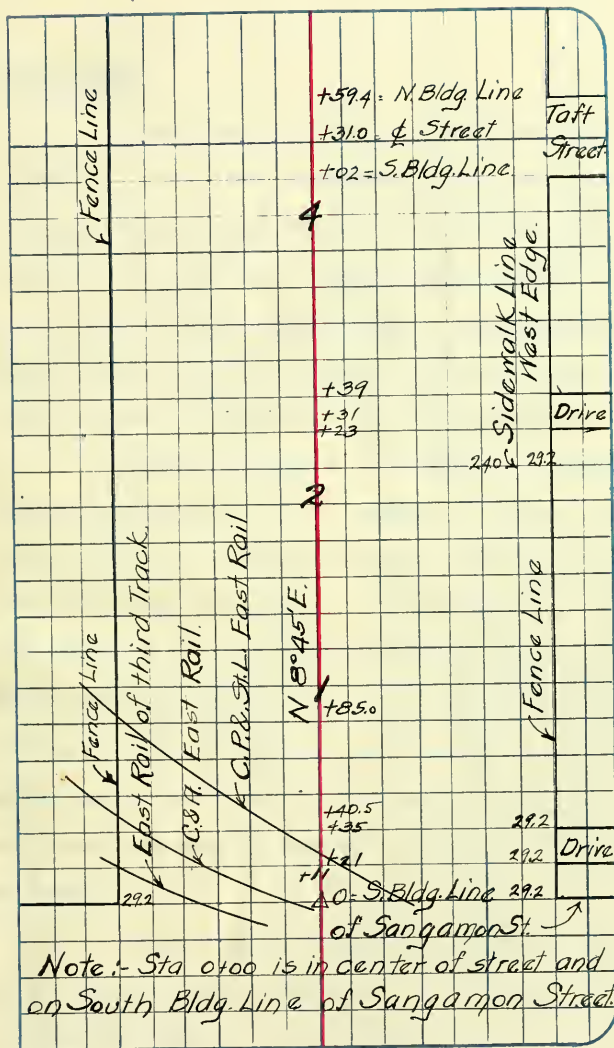 +59.4 = N. Bldg. Line
+31.0 = ₵ Street
+02 = S. Bldg. Line.
Taft
Street.
Fence Line
4
Sidewalk Line
West Edge.
+39
+31
+23
Drive
24.0
29.2
2
East Rail of third Track.
C.&A. East Rail.
C.P.& St.L. East Rail
N 8°45' E.
Fence Line
Fence Line
1
+85.0
+40.5
+35
29.2
+21
29.2
Drive
+11
29.2
△ 0 = S. Bldg. Line
29.2
of Sangamon St.
Note:- Sta 0+00 is in center of street and
on South Bldg. Line of Sangamon Street.